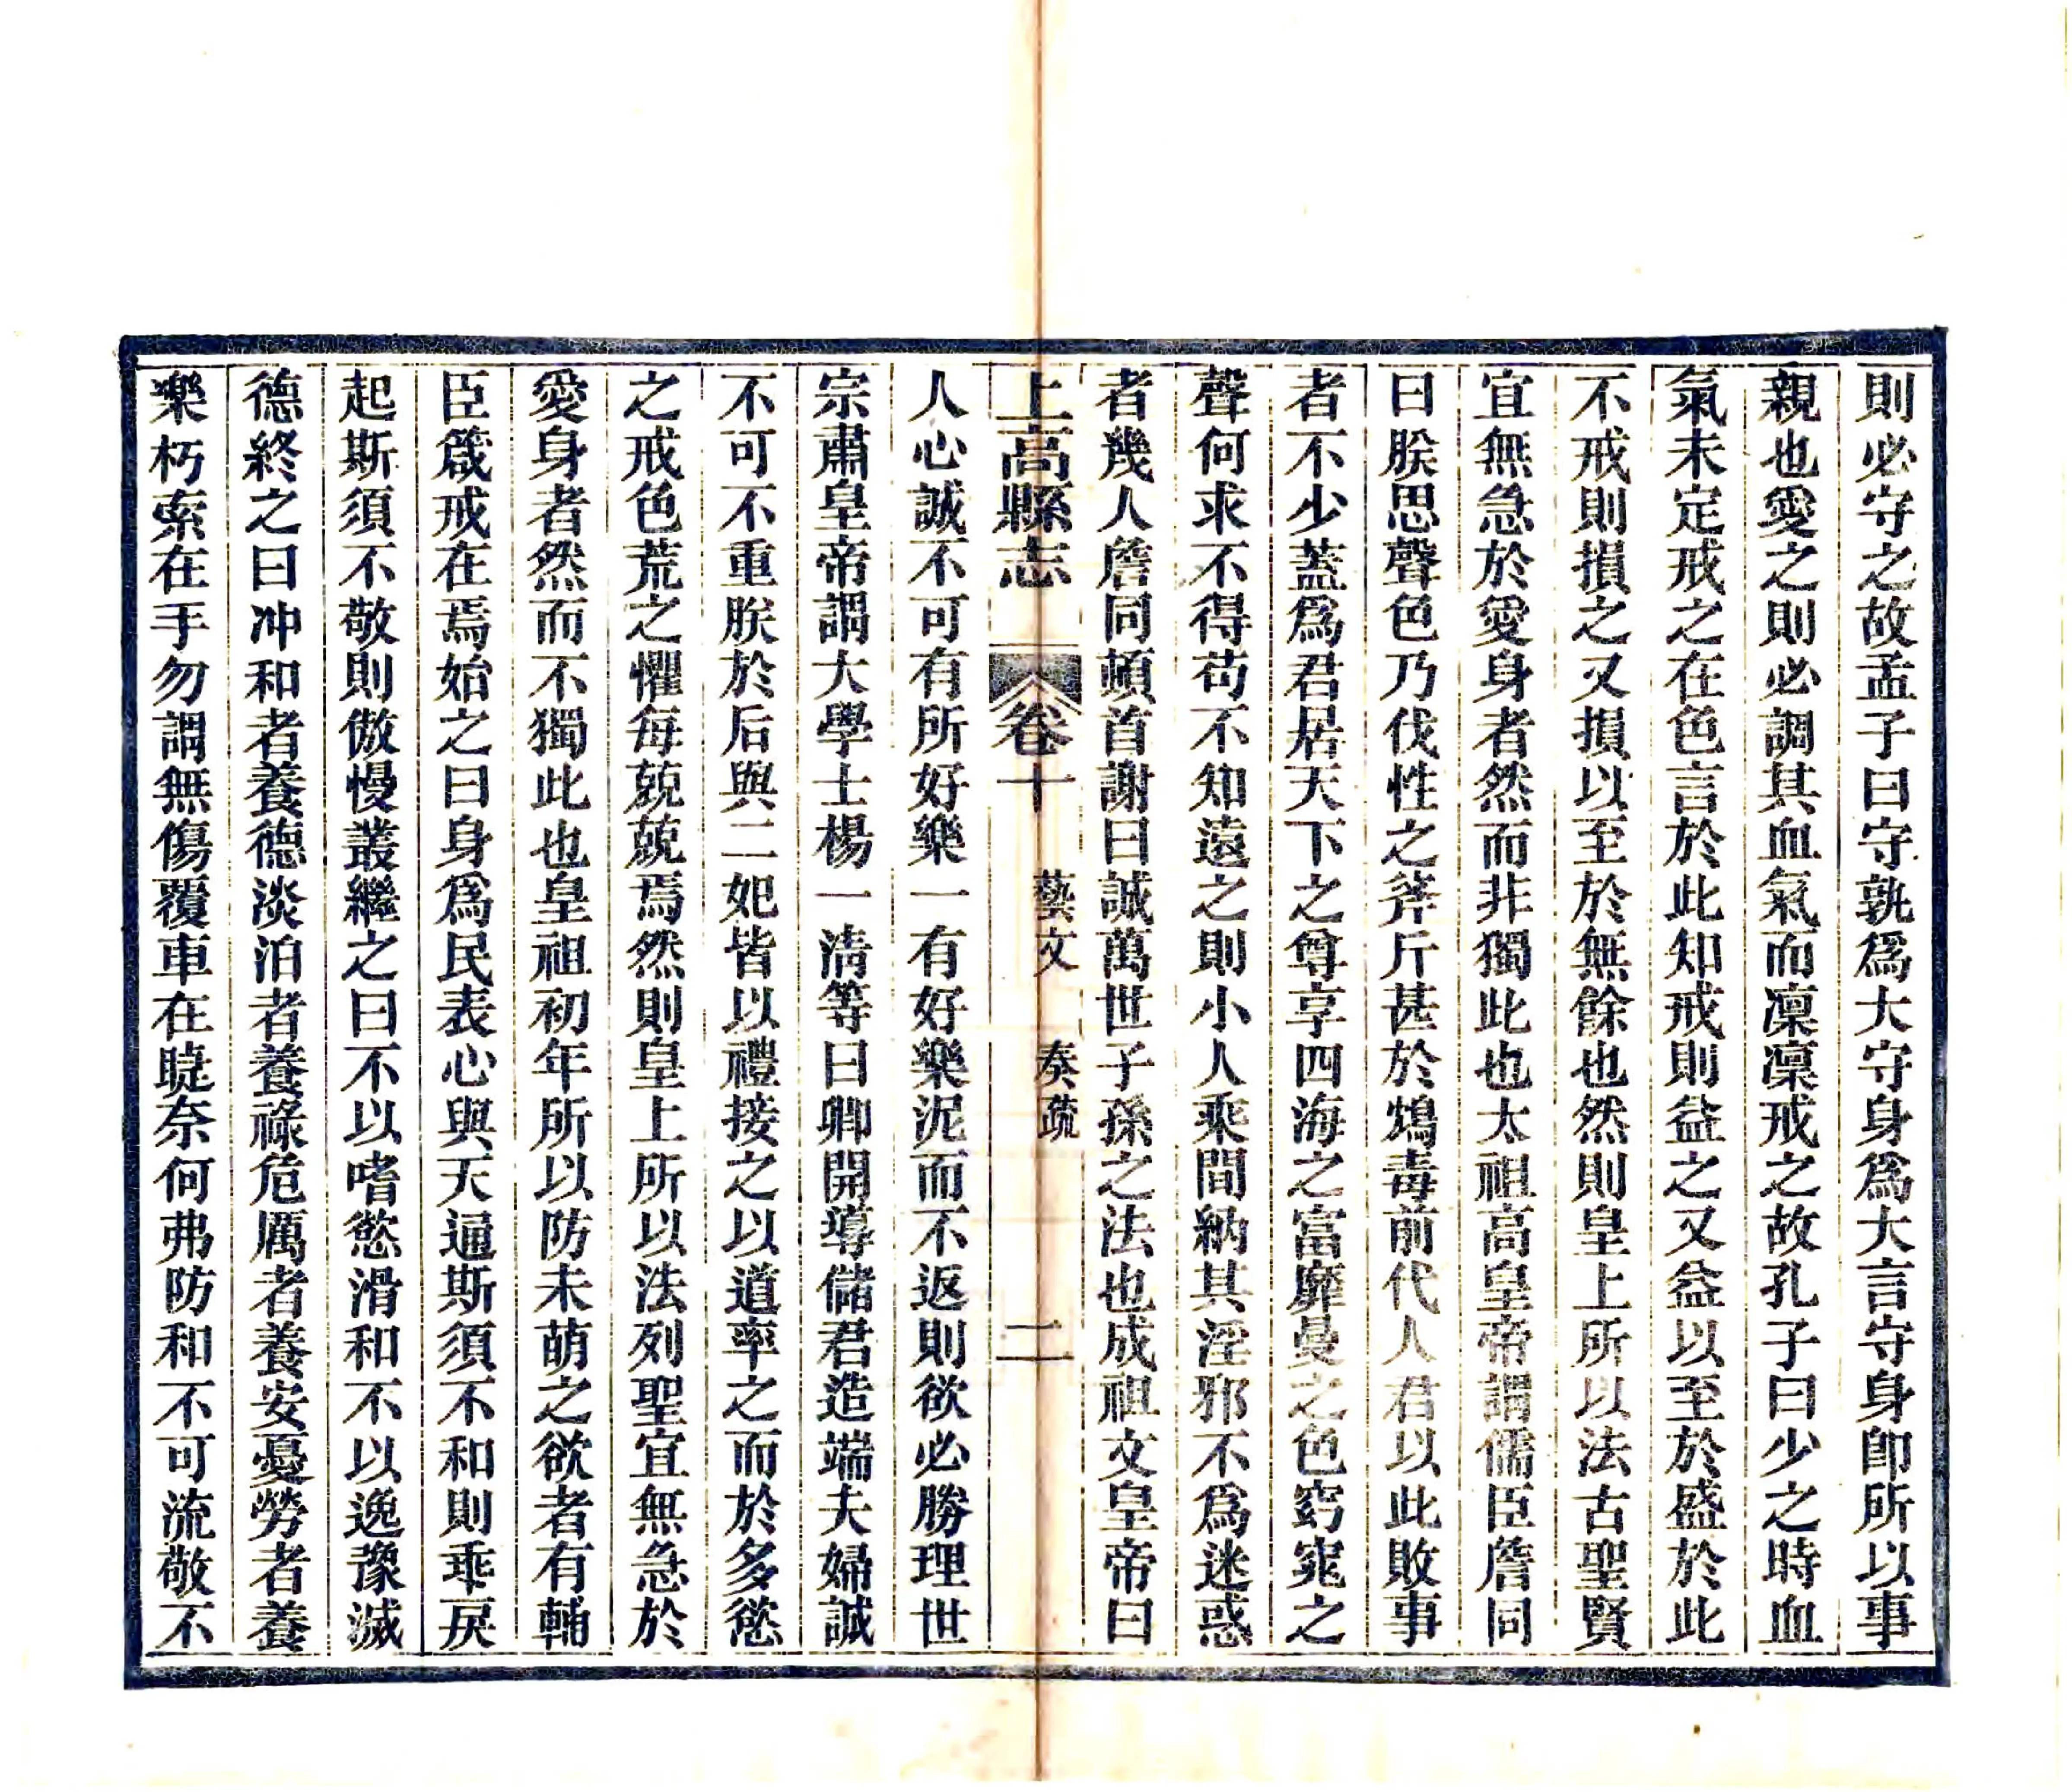 則必守之故孟子曰守孰爲大守身爲大言守身卽所以事
親也愛之則必調其血氣而凜凜戒之故孔子曰少之時血
氣未定戒之在色言於此知戒則益之又益以至於盛於此
不戒則損之又損以至於無餘也然則皇上所以法古聖賢
宜無急於愛身者然而非獨此也太祖高皇帝謂儒臣詹同
曰朕思聲色乃伐性之斧斤甚於鴆毒前代人君以此敗事
者不少蓋爲君居天下之尊享四海之富靡曼之色窈窕之
聲何求不得苟不知遠之則小人乘間納其淫邪不爲迷惑
者幾人詹同頓首謝曰誠萬世子孫之法也成祖文皇帝曰
上高縣志 卷十 藝文 奏疏 二
人心誠不可有所好樂一有好樂泥而不返則欲必勝理世
宗肅皇帝謂大學士楊一清等曰卿開導儲君造端夫婦誠
不可不重朕於后與二妃皆以禮接之以道率之而於多慾
之戒色荒之懼每兢兢焉然則皇上所以法列聖宜無急於
愛身者然而不獨此也皇祖初年所以防未萌之欲者有輔
臣箴戒在焉始之曰身爲民表心與天通斯須不和則乖戾
起斯須不敬則傲慢叢繼之曰不以嗜慾滑和不以逸豫滅
德終之曰冲和者養德淡泊者養祿危厲者養安憂勞者養
樂朽索在手勿謂無傷覆車在睫奈何弗防和不可流敬不